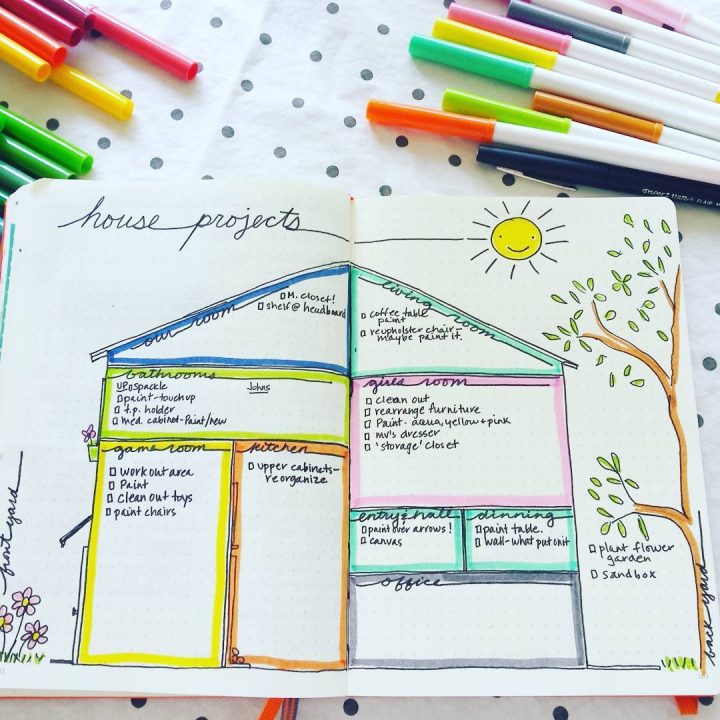 house projects
our room
□ M. closet!
□ shelf @ headboard
living room
□ coffee table
paint
□ reupholster chair-
maybe paint it.
bathrooms
UP □ spackle
□ paint-touchup
□ t.p. holder
□ med. cabinet-Paint/new
Johns
girls room
□ clean out
□ rearrange furniture
□ Paint- aqua, yellow + pink
□ mv's dresser
□ 'storage' closet
game room
□ work out area
□ Paint
□ Clean out toys
□ paint chairs
kitchen
□ upper cabinets-
reorganize
entry & hall
□ paint over arrows!
□ canvas
dinning
□ paint table.
□ wall-what put on it
office
front yard
□ plant flower
garden
□ sandbox
back yard